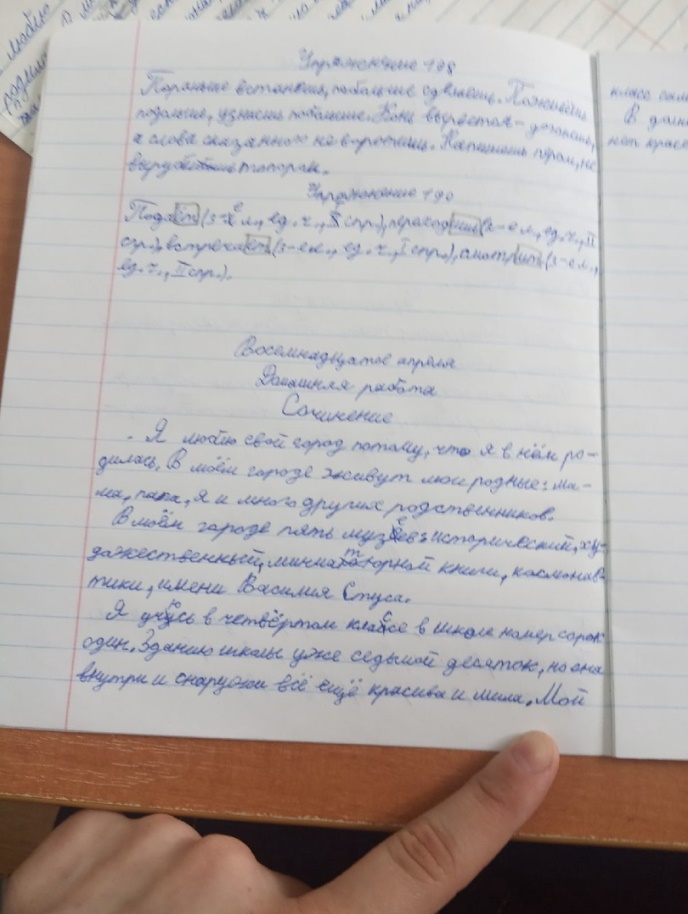 Упражнение 198
Пораньше встанешь, побольше сделаешь. Поживёшь
подольше, узнаешь побольше. Конь вырвется – догонишь,
а слова сказанного не воротишь. Напишешь пером, не
вырубишь топором.
Упражнение 190
Подаёт (3-е л., ед. ч., I спр.), переходишь (2-е л., ед. ч., II
спр.), встречает (3-е л., ед. ч., I спр.), смотрит (3-е л.,
ед. ч., II спр.).
Восемнадцатое апреля
Домашняя работа
Сочинение
Я люблю свой город потому, что я в нём ро-
дилась. В моём городе живут мои родные: ма-
ма, папа, я и много других родственников.
В моём городе пять музеев: исторический, ху-
дожественный, миниатюрной книги, космонав-
тики, имени Василия Стуса.
Я учусь в четвёртом классе в школе номер сорок
один. Зданию школы уже седьмой десяток, но она
внутри и снаружи всё ещё красива и мила. Мой
класс сам
В
нет
люблю